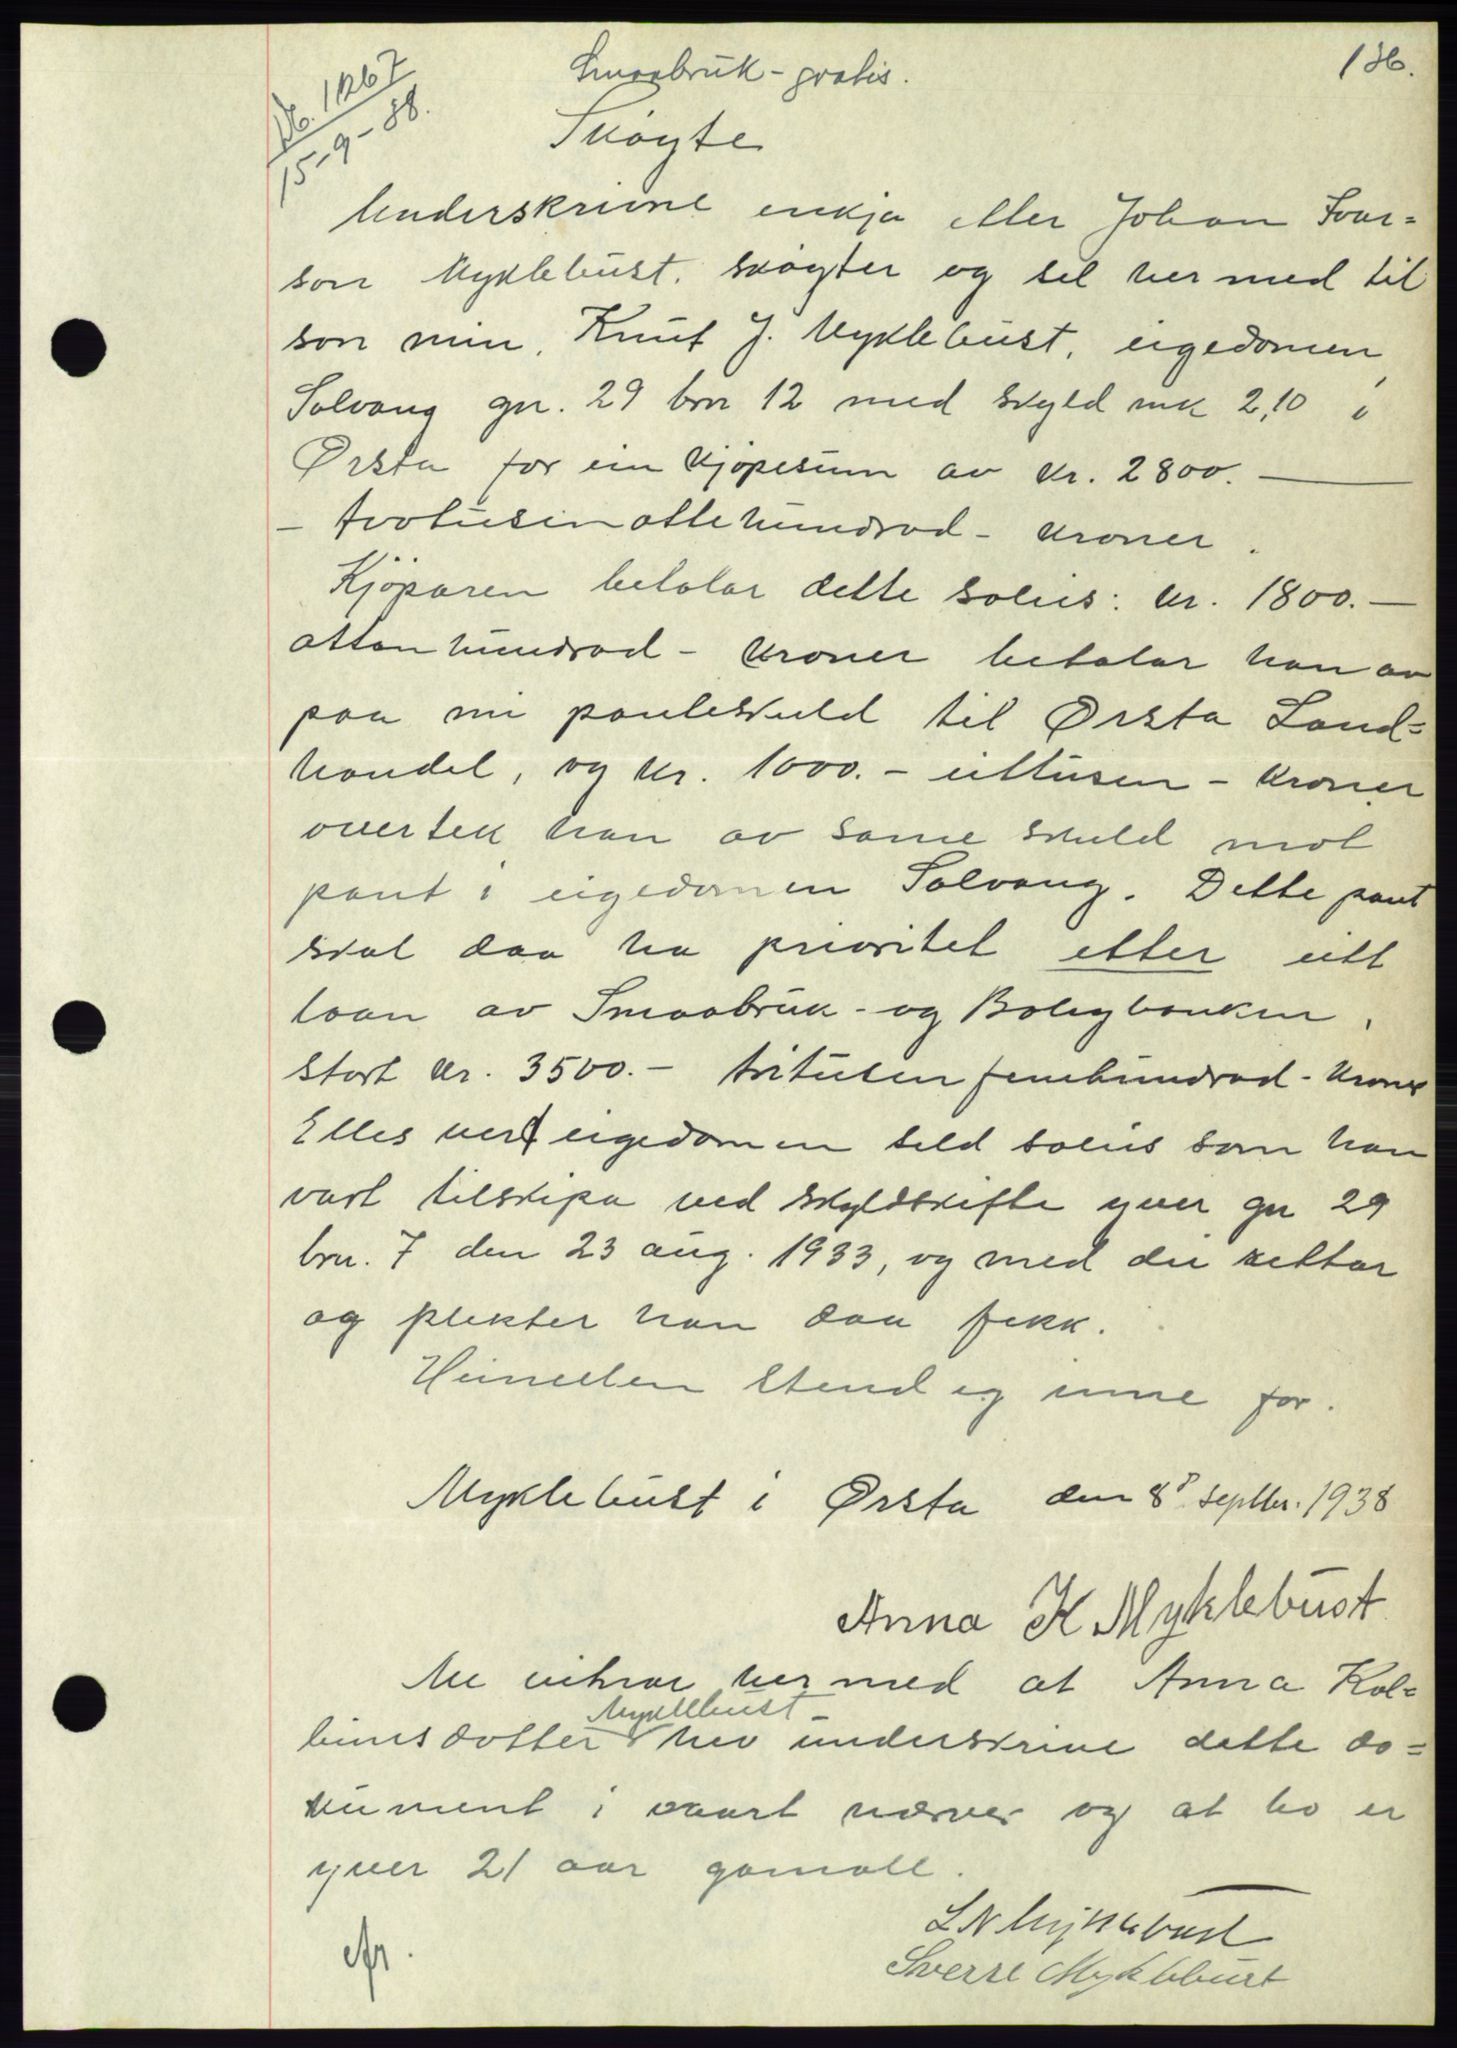 Smaabruk - gratis.
136.
Nr. 1267
15-9-38.
Skøyte
Underskrivne enkja etter Johan Ivar=
son Myklebust, skøyter og sel hermed til
son min, Knut J. Myklebust, eigedomen
Solvang gn. 29 brn 12 med skyld mk 2,10 i
Ørsta for ein kjøpesum av kr. 2800.—
- tvotusinottehundrad - kroner.
Kjøparen betalar dette soleis: kr. 1800.—
attanhundrad - kroner betalar han av
paa mi panteskuld til Ørsta Land=
handel, og kr. 1000.- eittusen - kroner
overtek han av same skuld mot
pant i eigedomen Solvang. Dette pant
skal daa ha prioritet etter eitt
laan av Smaabruk- og Boligbanken,
stort kr. 3500.- tritusen femhundrad - kroner
Elles vert eigedomen seld soleis som han
vart tilskipa ved skyldskifte yver gn 29
brn. 7 den 23 aug. 1933, og med dei rettar
og plikter han daa fekk.
Heimelen stend eg inne for.
Myklebust i Ørsta den 8' septbr. 1938
Anna K Myklebust
Me vitnar hermed at Anna Kol=
beinsdotter Myklebust hev underskrive dette do=
kument i vaart nærver og at ho er
yver 21 aar gamall.
L N Myklebust
Sverre Myklebust